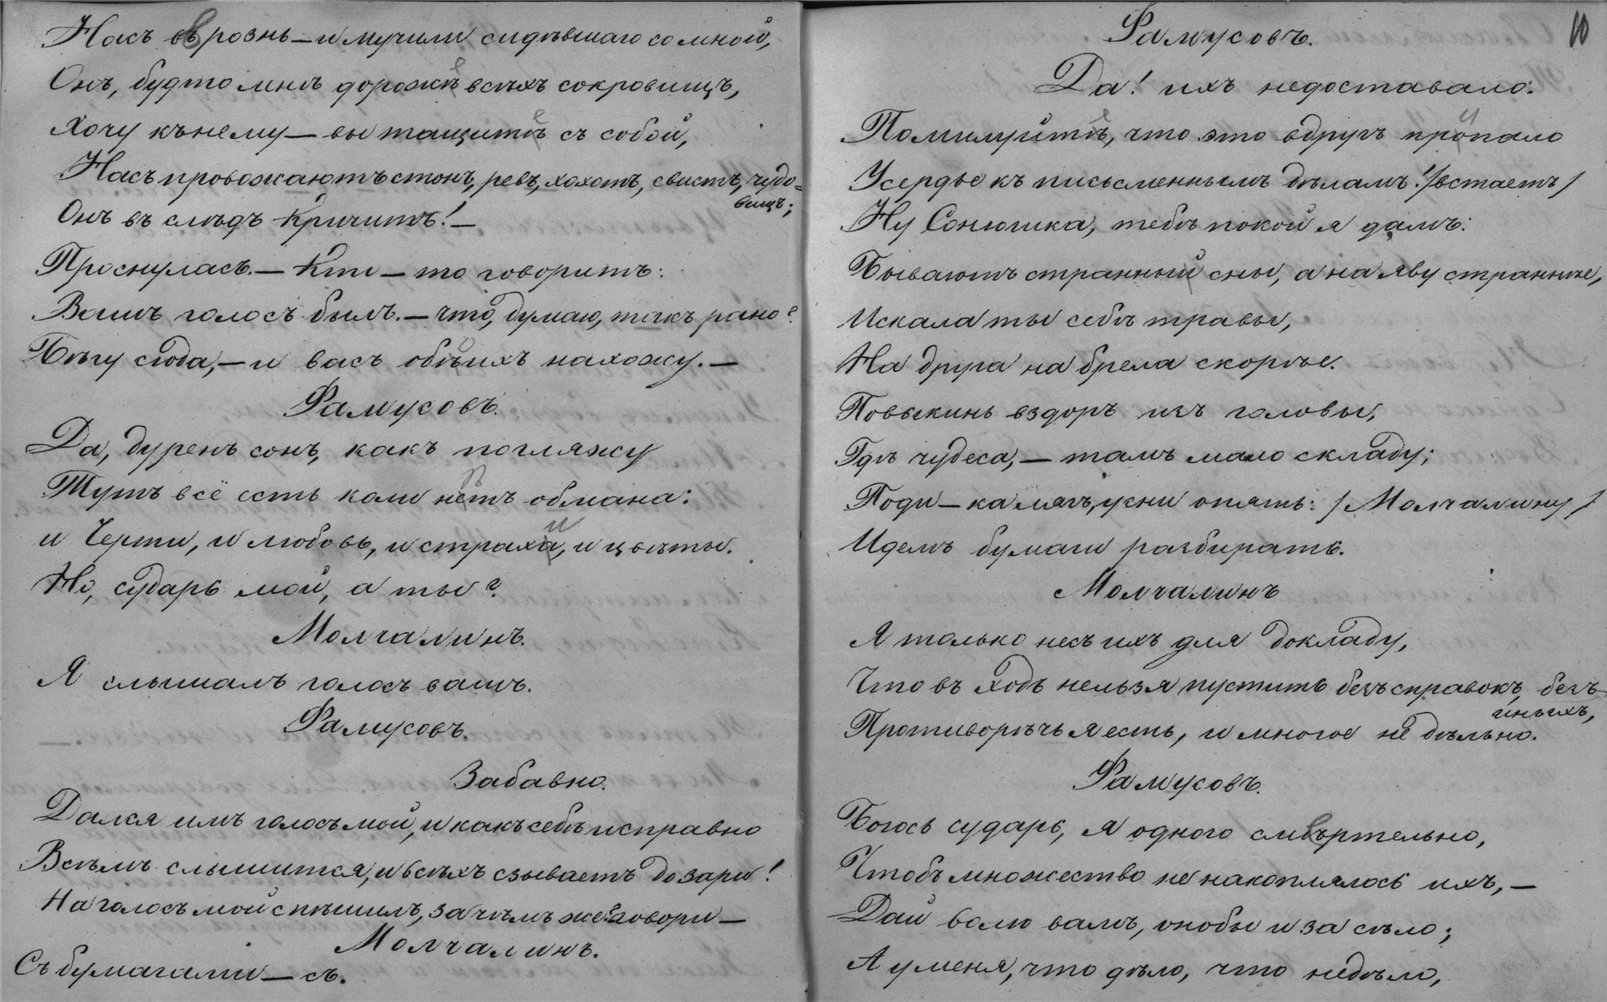 Насъ въ рознь — и мучили сидѣвшаго со мной,
Онъ, будто мнѣ дороже всѣхъ сокровищъ,
Хочу къ нему — вы тащите съ собой,
Насъ провожаютъ стонъ, ревъ, хохотъ, свистъ, чудо-
вищъ;
Онъ въ слѣдъ кричитъ! —
Проснулась. — Кто — то говоритъ:
Вашъ голосъ былъ. — что, думаю, такъ рано?
Бѣгу сюда, — и васъ обѣихъ нахожу. —
Фамусовъ.
Да, дуренъ сонъ, какъ погляжу
Тутъ всё есть коли нѣтъ обмана:
и Черти, и любовь, и страхи, и цвѣты.
Но, сударь мой, а ты?
Молчалинъ.
Я слышалъ голосъ вашъ.
Фамусовъ.
Забавно.
Дался имъ голосъ мой, и какъ себѣ исправно
Всѣмъ слышится, и всѣхъ сзываетъ до зари!
На голосъ мой спѣшилъ, за чѣмъ же? говори —
Молчалинъ.
Съ бумагами — съ.
10
Фамусовъ.
Да! ихъ недоставало.
Помилуйте, что это вдругъ припало
Усердье къ письменнымъ дѣламъ! /встаетъ/
Ну Сонюшка, тебѣ покой я дамъ:
Бываютъ странный сны, а на яву страннѣе,
Искала ты себѣ травы,
На друга на брела скорѣе.
Повыкинь вздоръ изъ головы,
Гдѣ чудеса, — тамъ мало складу;
Поди — ка лягъ, усни опять: /Молчалину/
Идемъ бумаги разбирать.
Молчалинъ
Я только несъ ихъ для докладу,
Что въ ходъ нельзя пустить безъ справокъ, безъ
иныхъ,
Противорѣчья есть, и многое не дѣльно.
Фамусовъ.
Боюсь сударь, я одного смертельно,
Чтобъ множество не накоплялось ихъ, —
Дай волю вамъ, оно бы и засѣло;
А у меня, что дѣло, что недѣло,